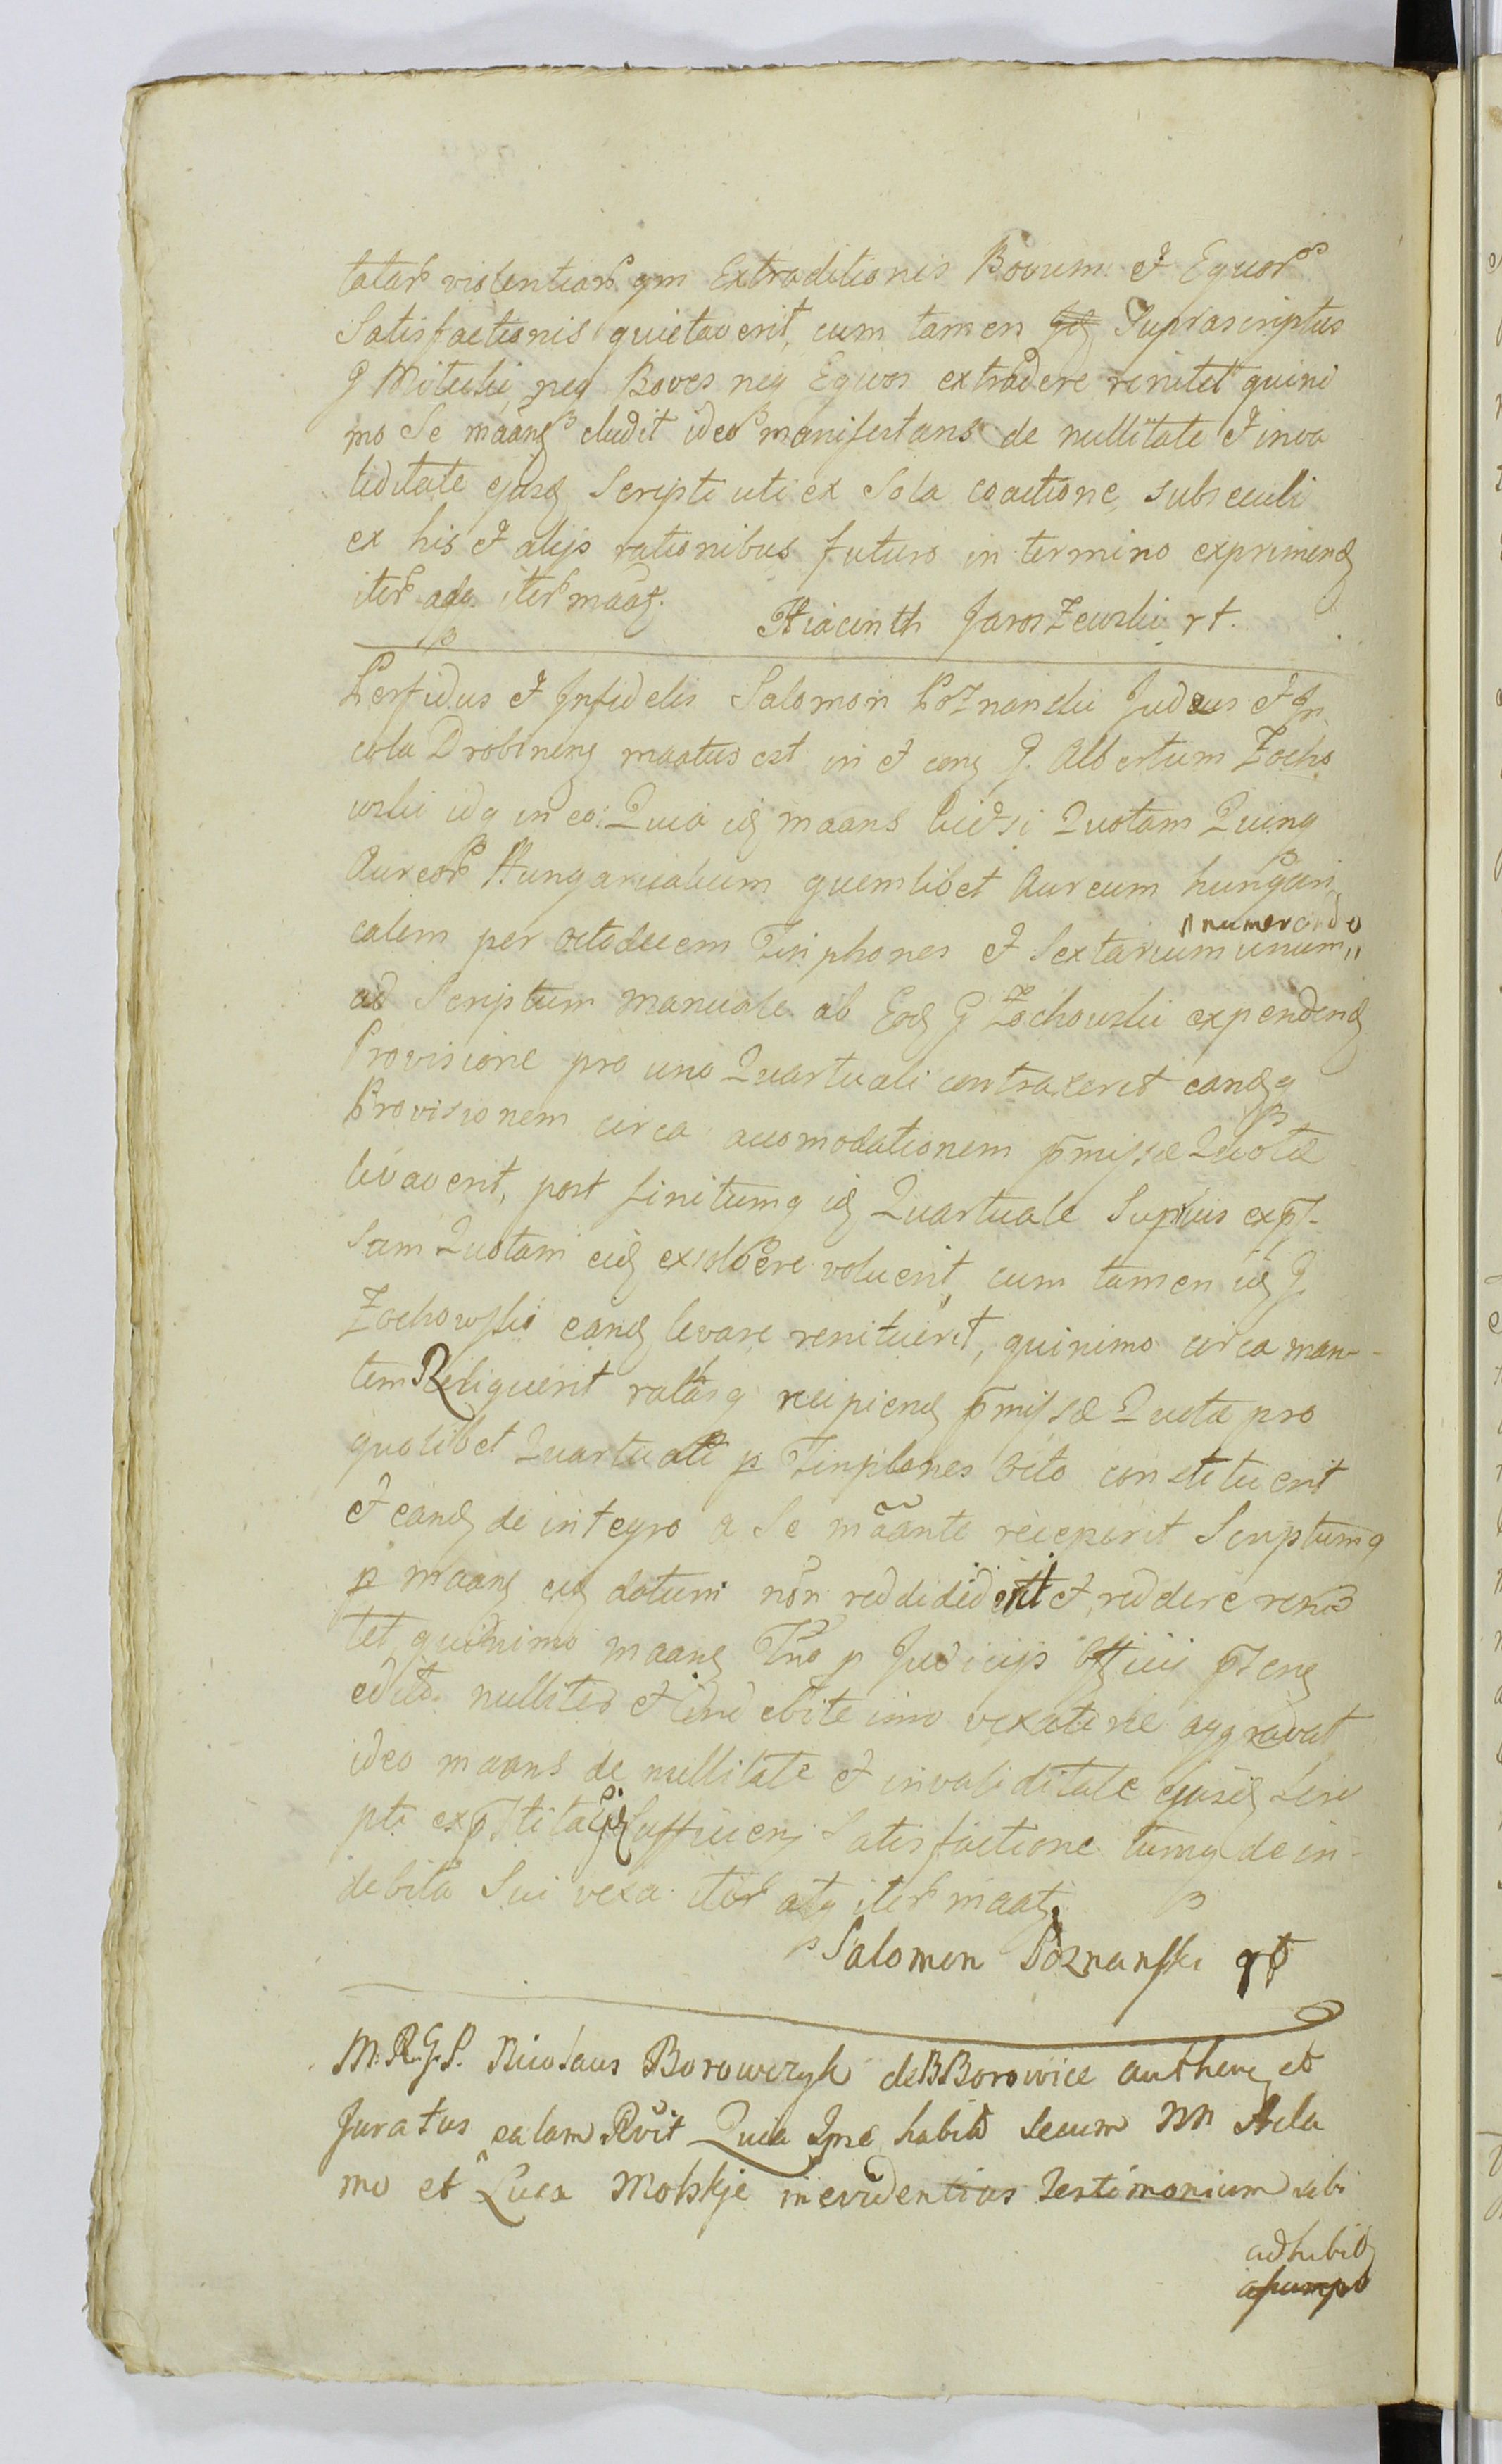 tatar violentiar qm Extraditionis Bovum et Equor
Satisfactionis quietaverit, cum tamen Suprascriptus
G Miteski neq Boves neq Equos extradere renitet quini
mo Se maang eludit ideo manifestans de nullitate et inva
liditate ejusd Scripti uti ex Sola coactione subsecuti
ex his et alijs rationibus futuro in termino exprimend
iter atq iter maat.
Hiacinth Jaroszewski rt.
Perfidus et Infidelis Salomon Poznanski Judeus et In
cola Drobinens maatus est in et cong G. Albertum Zocho
wski idq in eo: Quia id maans licet si Quotam Quinq
Aureor Hungaricalium quemlibet Aureum hungari
calem per octodecem Tinphones et Sextarium unum,,
,,numerando
ad Scriptum manuale ab Eod G Zochowski expendend
Provisione pro uno Quartuali contraxerit eandq
Provisionem circa accomodationem pmissæ Quotæ
levaverit, post finitumq id Quartuale Superius exp
sam Quotam eid exsolvere voluerit, cum tamen id G
Zochowski eand levare renituerit, quinimo circa man-
tem Reliquerit ratasq recipiend pmissæ Quotæ pro
quolibet Quartuali p Tinphones octo constituerit
et eand de integro a Se maante receperit Scriptumq
p maang eid datum non reddididerit et reddere reni
tet quinimo maang Tno p Judicijs Officij pseng
edito nulliter et indebite imo vexatorie aggravat
ideo maans de nullitate et invaliditate ejusd Scri
pti exp Sufficien Satisfactione tumq de in-
debita Sui vexa iter atq iter maat.
Salomon Poznanski rt
M.R.G.S. Nicolaus Borowczyk de B Borowice authen et
Juratus palam Rvit Quia Ipse habito secum NN Ada
mo et Luca Molskje in evidentius Testimonium sibi
adhibit